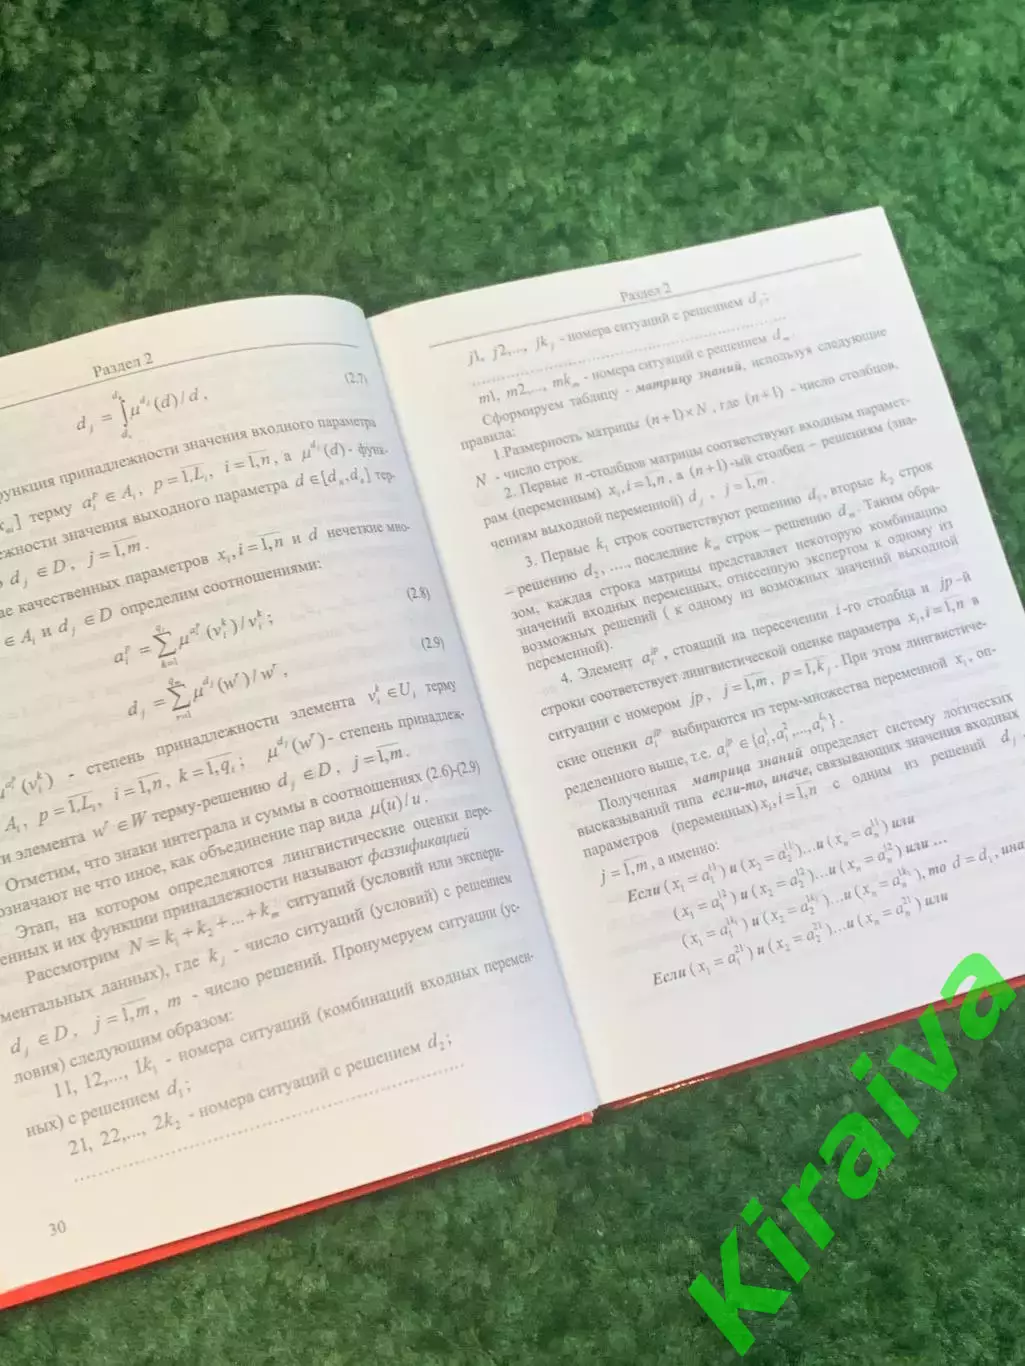 Раздел 2
d_j = ∫ μ^{d_j}(d)/d, (2.7)
функция принадлежности значения входного параметра
терму a_i^p ∈ A_i, p = 1,l_i, i = 1,n, а μ^{d_j}(d)- функ-
значения выходного параметра d ∈ [d_н, d_в] тер-
d_j ∈ D, j = 1,m.
качественных параметров x_i, i = 1,n и d нечеткие мно-
∈ A_i и d_j ∈ D определим соотношениями:
a_i^p = Σ_{k=1}^{q_i} μ^{a_i^p}(v_i^k)/v_i^k; (2.8)
d_j = Σ_{r=1}^{q_m} μ^{d_j}(w^r)/w^r, (2.9)
μ^{a_i^p}(v_i^k) - степень принадлежности элемента v_i^k ∈ U_i терму
A_i, p = 1,l_i, i = 1,n, k = 1,q_i; μ^{d_j}(w^r)- степень принадлеж-
ти элемента w^r ∈ W терму-решению d_j ∈ D, j = 1,m.
Отметим, что знаки интеграла и суммы в соотношениях (2.6)-(2.9)
означают не что иное, как объединение пар вида μ(u)/u.
Этап, на котором определяются лингвистические оценки пере-
енных и их функции принадлежности называют фаззификацией
Рассмотрим N = k_1 + k_2 + ... + k_m ситуаций (условий или экспери-
ментальных данных), где k_j - число ситуаций (условий) с решением
d_j ∈ D, j = 1,m, m - число решений. Пронумеруем ситуации (ус-
ловия) следующим образом:
11, 12,..., 1k_1 - номера ситуаций (комбинаций входных перемен-
ных) с решением d_1;
21, 22,..., 2k_2 - номера ситуаций с решением d_2;
30
Раздел 2
j1, j2,..., jk_j - номера ситуаций с решением d_j;
m1, m2,..., mk_m - номера ситуаций с решением d_m.
Сформируем таблицу - матрицу знаний, используя следующие
правила:
1.Размерность матрицы (n+1)×N, где (n+1) - число столбцов,
N - число строк.
2. Первые n-столбцов матрицы соответствуют входным парамет-
рам (переменным) x_i, i = 1,n, а (n+1)-ый столбец – решениям (зна-
чениям выходной переменной) d_j, j = 1,m.
3. Первые k_1 строк соответствуют решению d_1, вторые k_2 строк
– решению d_2, ...., последние k_m строк – решению d_m. Таким обра-
зом, каждая строка матрицы представляет некоторую комбинацию
значений входных переменных, отнесенную экспертом к одному из
возможных решений ( к одному из возможных значений выходной
переменной).
4. Элемент a_i^{jp}, стоящий на пересечении i-го столбца и jp-й
строки соответствует лингвистической оценке параметра x_i, i = 1,n в
ситуации с номером jp, j = 1,m, p = 1,k_j. При этом лингвистиче-
ские оценки a_i^{jp} выбираются из терм-множества переменной x_i, оп-
ределенного выше, т.е. a_i^{jp} ∈ {a_i^1, a_i^2, ..., a_i^{l_i}}.
Полученная матрица знаний определяет систему логических
высказываний типа если-то, иначе, связывающих значения входных
параметров (переменных) x_i, i = 1,n с одним из решений d_j,
j = 1,m, а именно:
Если (x_1 = a_1^{11}) и (x_2 = a_2^{11})...и (x_n = a_n^{11}) или
(x_1 = a_1^{12}) и (x_2 = a_2^{12})...и (x_n = a_n^{12}) или ...
(x_1 = a_1^{1k_1}) и (x_2 = a_2^{1k_1})...и (x_n = a_n^{1k_1}), то d = d_1, ина
Если (x_1 = a_1^{21}) и (x_2 = a_2^{21})...и (x_n = a_n^{21}) или
Kiraiva